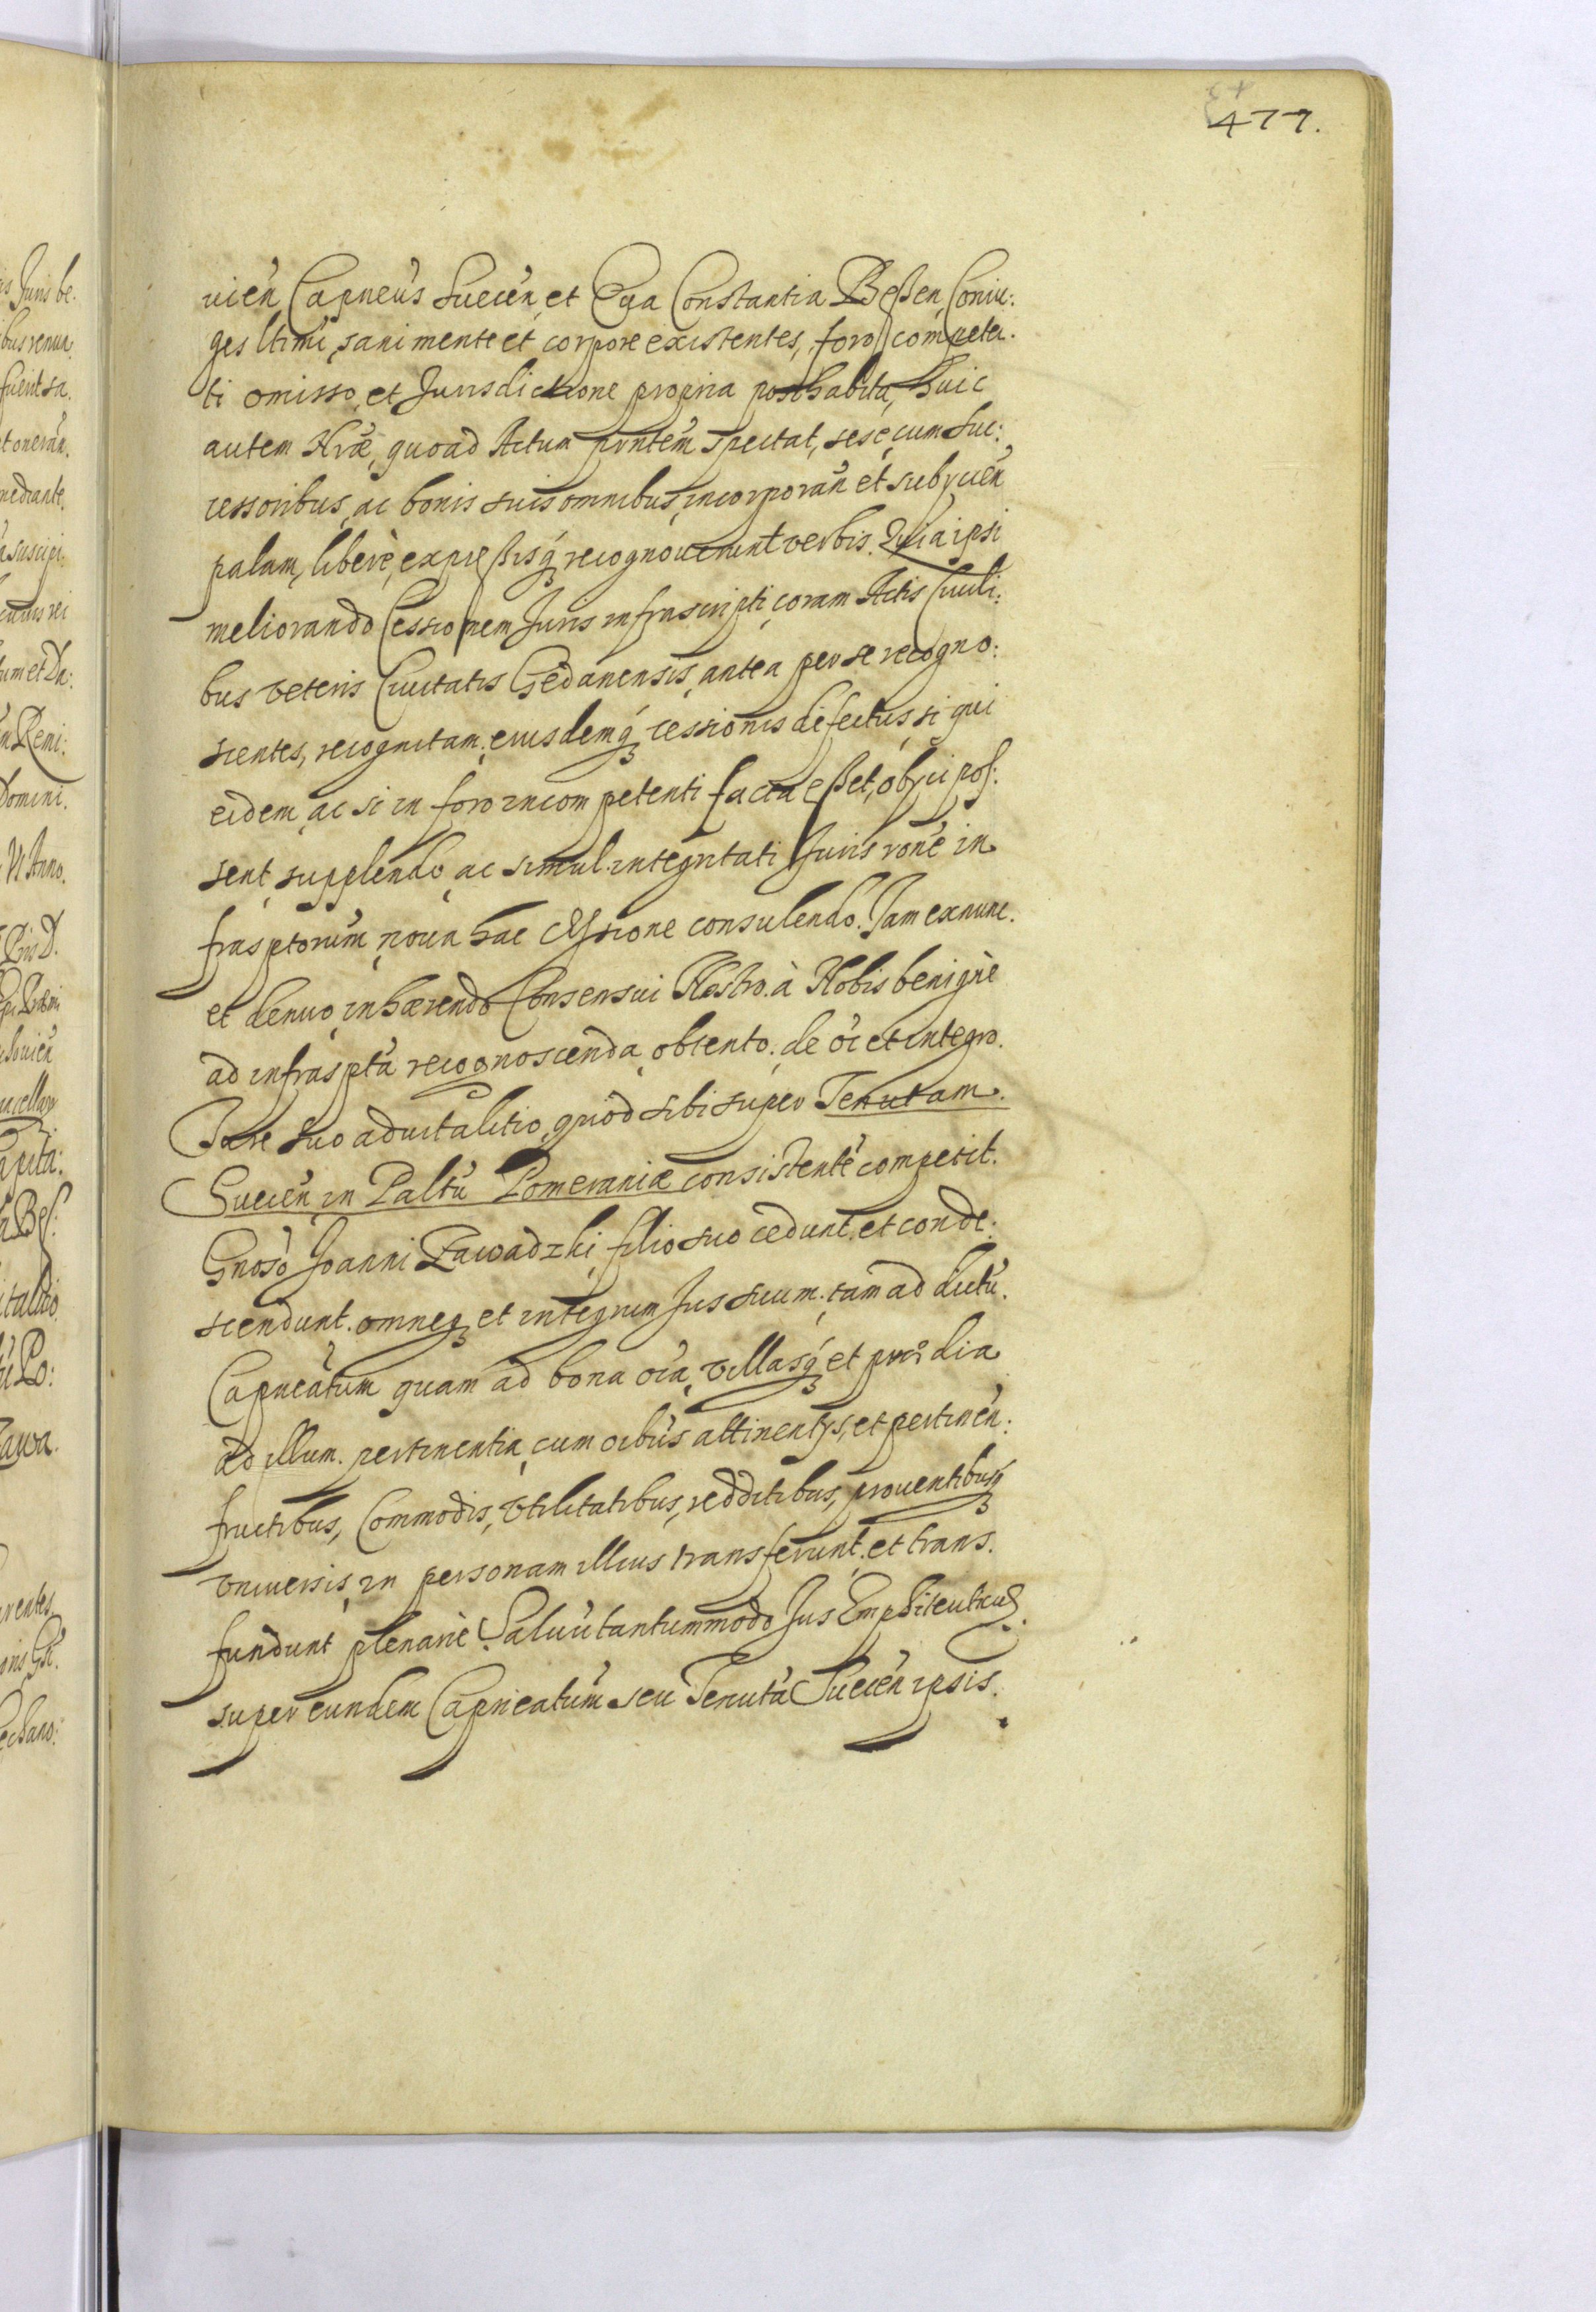 477.
uień Capneús Suecéń, et Eua Constantia Beßen Coniu:
ges ltimi, sani mente et corpore existentes, foro competeń.
ti omisso, et Jurisdictione propria posthabita, huic
autem Nrae, quoad Actum pnntem spectat, sese cum Suc:
cessoribus, ac bonis suis omnibus, incorporań et subijcień
palam, liberè, expreßisq́ recognouerunt verbis. Quia ipsi
meliorando Cessionem Juris infrascripti, coram Actis Ciuili:
bus veteris Ciuitatis Gedanensis, antea per se recogno:
scentes, recognitam, eiusdemq́ cessionis defectus, si qui
eidem, ac si in foro incompetenti facta eßet, obijci pos:
sent, supplendo, ac simul integritati Juris roné in
frasptorum, noua hac cessione consulendo. Jam ex nunc.
et denuo, inhaerendo Consensui Nostro. à Nobis benignè
ad infrasptá recognoscenda, obtento. de oi et integro.
Jure suo aduitalitio, quod sibi super Tenutam.
Suecéń, in Paltú Pomeraniae consistenté competit.
Gnoso Joanni Zawadzki, filio suo cedunt, et conde:
scendunt. omneq et integrum Jus suum. tam ad dictú.
Capneátum quam ad bona oia, villasq́ et praedia
ad illum. pertinentia, cum oibus attinentijs, et pertinéń:
fructibus, Commodis, Vtilitatibus, redditibus, prouentibusq́
vniuersis, in personam illius transferunt. et trans.
fundunt plenariè. Saluú tantummodo Jus Emphiteuticum.
super eundem Capneatúm seu Tenutá Suecéń ipsis.